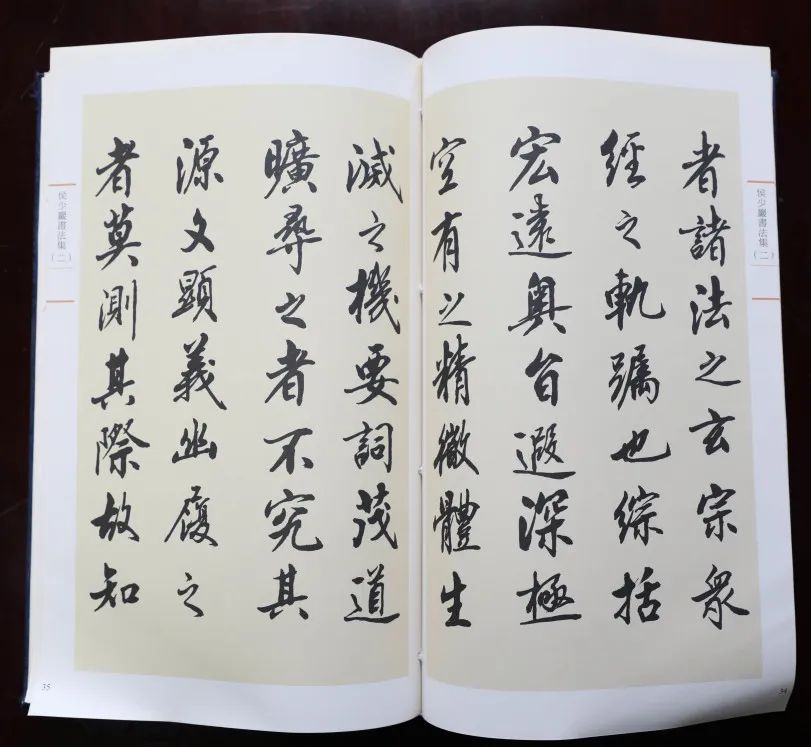 侯少巖書法集(二)
者諸法之玄宗衆
經之軌躅也綜括
宏遠奧旨遐深極
空有之精微體生
34
滅之機要詞茂道
曠尋之者不究其
源文顯義幽履之
者莫測其際故知
侯少巖書法集(二)
35